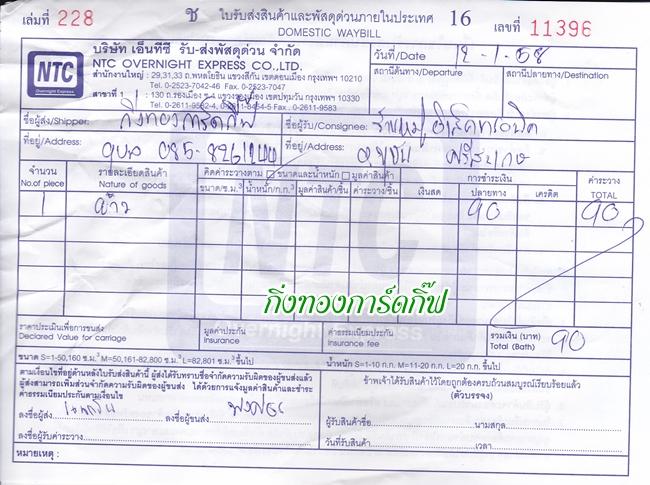 เล่มที่ 228 ช ใบรับส่งสินค้าและพัสดุด่วนภายในประเทศ 16 เลขที่ 11396
DOMESTIC WAYBILL
NTC
Overnight Express
บริษัท เอ็นทีซี รับ-ส่งพัสดุด่วน จำกัด
NTC OVERNIGHT EXPRESS CO.,LTD.
สำนักงานใหญ่ : 29,31,33 ถ.พหลโยธิน แขวงสีกัน เขตดอนเมือง กรุงเทพฯ 10210
Tel. 0-2523-7042-46 Fax. 0-2523-7047
สาขาที่ 1 : 130 ถ.รองเมือง ซ.4 แขวงรองเมือง เขตปทุมวัน กรุงเทพฯ 10330
Tel. 0-2611-9582-4, 0-2611-8454-5 Fax. 0-2611-9583
วันที่/Date 12-1-58
สถานีต้นทาง/Departure สถานีปลายทาง/Destination
ชื่อผู้ส่ง/Shipper: กิ่งทองการ์ดกิ๊ฟ ชื่อผู้รับ/Consignee:
ที่อยู่/Address: 085-8261244 ที่อยู่/Address: ศรีสะเกษ
จำนวน รายละเอียดสินค้า คิดค่าระวางตาม ขนาดและน้ำหนัก มูลค่าสินค้า การชำระเงิน ค่าระวาง
No.of piece Nature of goods ขนาด/ซ.ม.³ น้ำหนัก/ก.ก. มูลค่าสินค้า/ชิ้น ค่าระวาง/ชิ้น เงินสด ปลายทาง เครดิต TOTAL
1 90 90
กิ่งทองการ์ดกิ๊ฟ
ราคาประเมินเพื่อการขนส่ง มูลค่าประกัน ค่าธรรมเนียมประกัน รวมเงิน (บาท) 90
Declared Value for carriage Insurance Insurance fee Total (Bath)
ขนาด S=1-50,160 ซ.ม.³ M=50,161-82,800 ซ.ม.³ L=82,801 ซ.ม.³ขึ้นไป น้ำหนัก S=1-10 ก.ก. M=11-20 ก.ก. L=20 ก.ก. ขึ้นไป
ตามเงื่อนไขที่อยู่ด้านหลังใบส่งสินค้านี้ ผู้ส่งได้รับทราบข้อจำกัดความรับผิดของผู้ขนส่งแล้ว
ผู้ส่งสามารถเพิ่มส่วนจำกัดความรับผิดของผู้ขนส่ง ได้ด้วยการแจ้งมูลค่าสินค้าและชำระ
ค่าธรรมเนียมประกันตามเงื่อนไข
ข้าพเจ้าได้รับสินค้าไว้โดยถูกต้องครบถ้วนสมบูรณ์เรียบร้อยแล้ว
(ตัวบรรจง)
ลงชื่อผู้ส่ง ลงชื่อผู้ขนส่ง ผู้รับสินค้าชื่อ นามสกุล
ลงชื่อผู้รับค่าระวาง วันที่รับสินค้า เวลา
หมายเหตุ :